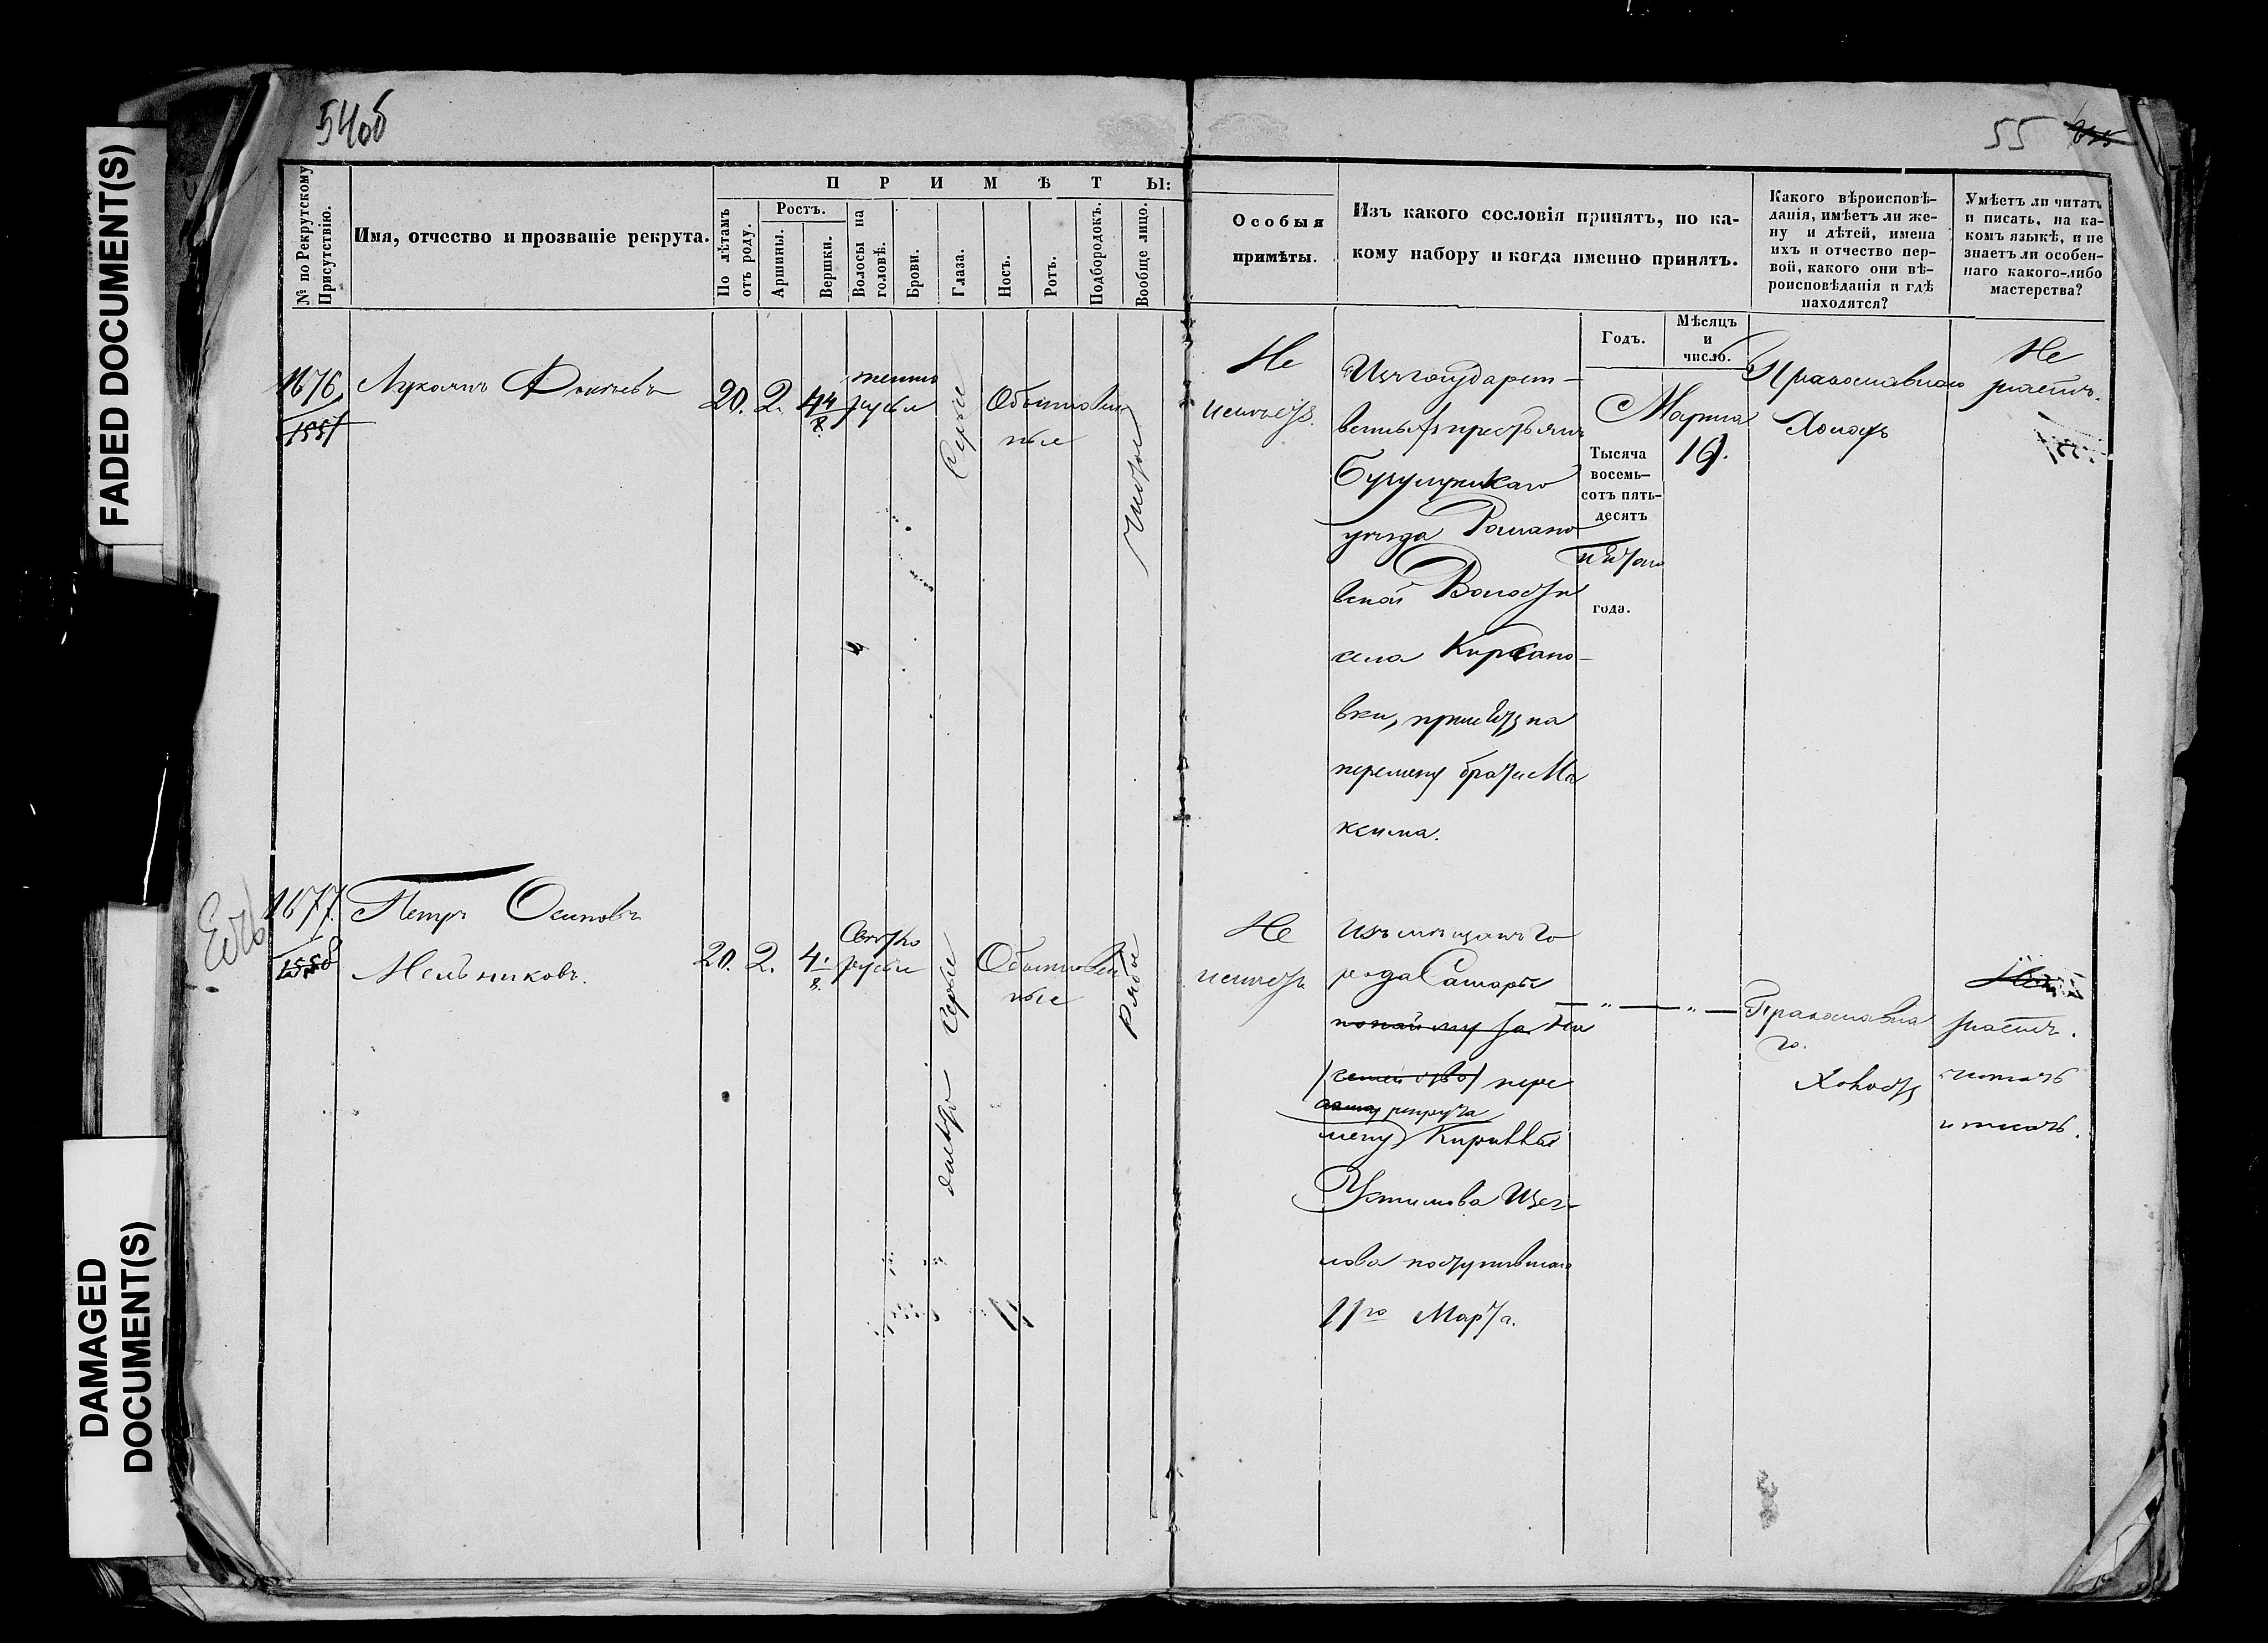 FADED DOCUMENT(S)
DAMAGED
DOCUMENT(S)
54об
55
№ по Рекрутскому
Присутствію.
Имя, отчество и прозваніе рекрута.
П Р И М Ѣ Т Ы:
По лѣтамъ
отъ роду.
Ростъ.
Аршины.
Вершки.
Волосы на
головѣ.
Брови.
Глаза.
Носъ.
Ротъ.
Подбородокъ.
Вообще лицо.
Особыя
примѣты.
Изъ какого сословія принятъ, по ка-
кому набору и когда именно принятъ.
Какого вѣроисповѣ-
данія, имѣетъ ли же-
ну и дѣтей, имена
ихъ и отчество пер-
вой, какого они вѣ-
роисповѣданія и гдѣ
находятся?
Умѣетъ ли читать
и писать, на ка-
комъ языкѣ, и не
знаетъ ли особен-
наго какого-либо
мастерства?
Годъ.
Мѣсяцъ
и
число.
1676
1557
Лукоянъ
20. 2. 4 4/8
темно
русые
Сѣрые
Обыкновен
ные
Чистое
Не
имѣетъ.
Изъ государст-
венныхъ крестьянъ
Бугульминскаго
уѣзда Романо
вской Волости
села Кирсано-
вки, принятъ на
перемену брата Ма
ксима.
Тысяча
восемь-
сотъ пять-
десятъ
пятаго
года.
Марта
19.
Православнаго
Холостъ
Не
знаетъ.
1677.
1558
Петръ Осиповъ
Мельниковъ.
20. 2. 4 1/8.
Светло
русые
светло серые
Обыкновен
ные
Рябое
Не
имѣетъ
Изъ мѣщанъ го
рода Самары
по найму за
семейство пере
рекрута
мену
Устинова Щег-
лова поступившаго
11го Марта.
— „ — „ —
Православна
го.
Холостъ
знаетъ.
читать
и писать.